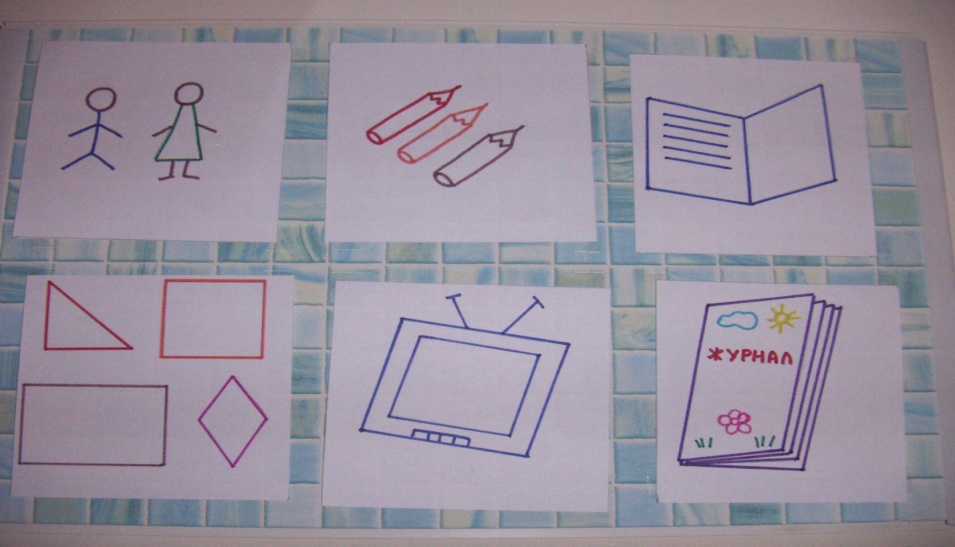 ЖУРНАЛ